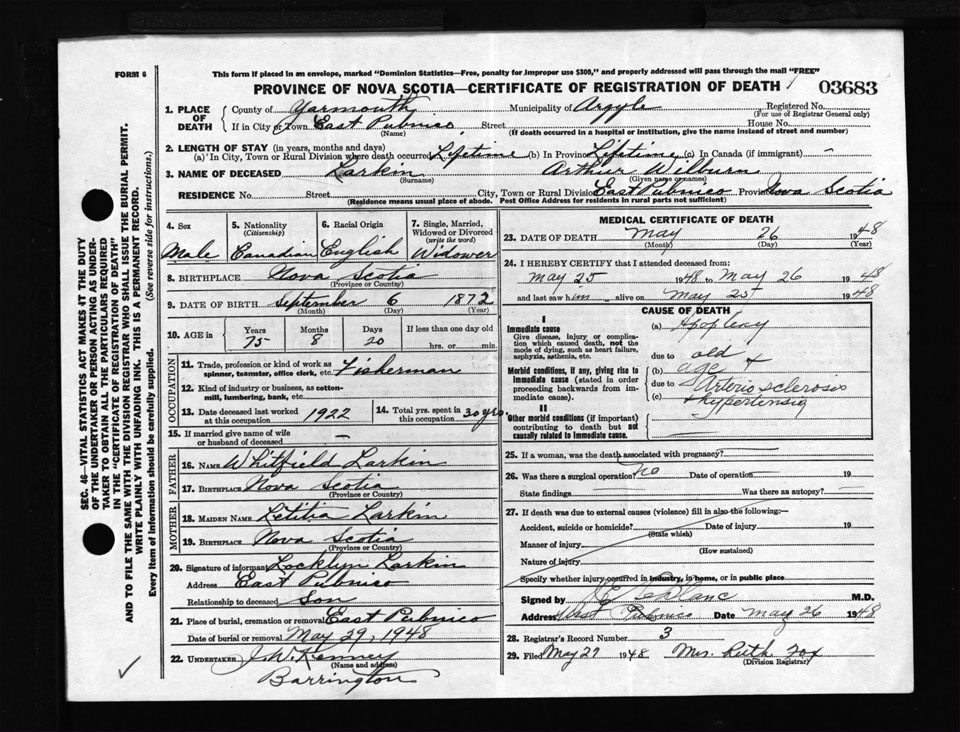 FORM 6
This form if placed in an envelope, marked "Dominion Statistics—Free, penalty for improper use $300," and properly addressed will pass through the mail "FREE"
PROVINCE OF NOVA SCOTIA—CERTIFICATE OF REGISTRATION OF DEATH
03683
1. PLACE OF DEATH
County of Yarmouth Municipality of Argyle Registered No.
(For use of Registrar General only)
If in City or Town East Pubnico Street House No.
(Name) (If death occurred in a hospital or institution, give the name instead of street and number)
2. LENGTH OF STAY (in years, months and days)
(a) In City, Town or Rural Division where death occurred Lifetime (b) In Province Lifetime (c) In Canada (if immigrant) —
3. NAME OF DECEASED Larkin Arthur Wilburn
(Surname) (Given name or names)
RESIDENCE No. Street City, Town or Rural Division East Pubnico Province Nova Scotia
(Residence means usual place of abode. Post Office Address for residents in rural parts not sufficient)
4. Sex 5. Nationality (Citizenship) 6. Racial Origin 7. Single, Married, Widowed or Divorced (write the word)
Male Canadian English Widower
8. BIRTHPLACE Nova Scotia
(Province or Country)
9. DATE OF BIRTH September 6 1872
(Month) (Day) (Year)
10. AGE in Years Months Days If less than one day old
75 8 20 hrs. or min.
OCCUPATION
11. Trade, profession or kind of work as spinner, teamster, office clerk, etc. Fisherman
12. Kind of industry or business, as cotton-mill, lumbering, bank, etc.
13. Date deceased last worked at this occupation 1922
14. Total yrs. spent in this occupation 30 yrs
15. If married give name of wife or husband of deceased —
FATHER
16. NAME Whitfield Larkin
17. BIRTHPLACE Nova Scotia
(Province or Country)
MOTHER
18. MAIDEN NAME Letitia Larkin
19. BIRTHPLACE Nova Scotia
(Province or Country)
20. Signature of informant Locklyn Larkin
Address East Pubnico
Relationship to deceased Son
21. Place of burial, cremation or removal East Pubnico
Date of burial or removal May 29, 1948
22. UNDERTAKER J. W. Kenney
(Name and address)
Barrington
MEDICAL CERTIFICATE OF DEATH
23. DATE OF DEATH May 26 1948
(Month) (Day) (Year)
24. I HEREBY CERTIFY that I attended deceased from:
May 25 1948 to May 26 1948
and last saw him alive on May 25 1948
CAUSE OF DEATH
I
Immediate cause
Give disease, injury or complication which caused death, not the mode of dying, such as heart failure, asphyxia, asthenia, etc.
(a) Apoplexy
due to old
Morbid conditions, if any, giving rise to immediate cause (stated in order proceeding backwards from immediate cause).
(b) age +
due to Arterio sclerosis
(c) Hypertensia
II
Other morbid conditions (if important) contributing to death but not causally related to immediate cause.
25. If a woman, was the death associated with pregnancy?
26. Was there a surgical operation? No Date of operation 19
State findings Was there an autopsy?
27. If death was due to external causes (violence) fill in also the following:—
Accident, suicide or homicide? Date of injury 19
(State which)
Manner of injury
(How sustained)
Nature of injury
Specify whether injury occurred in industry, in home, or in public place
Signed by LeBlanc M.D.
Address West Pubnico Date May 26 1948
28. Registrar's Record Number 3
29. Filed May 27 1948 Mrs. Ruth Fox
(Division Registrar)
SEC. 46—VITAL STATISTICS ACT MAKES IT THE DUTY
OF THE UNDERTAKER OR PERSON ACTING AS UNDER-
TAKER TO OBTAIN ALL THE PARTICULARS REQUIRED
IN THE "CERTIFICATE OF REGISTRATION OF DEATH"
AND TO FILE THE SAME WITH THE DIVISION REGISTRAR WHO SHALL ISSUE THE BURIAL PERMIT.
WRITE PLAINLY WITH UNFADING INK. THIS IS A PERMANENT RECORD.
Every item of information should be carefully supplied. (See reverse side for instructions.)